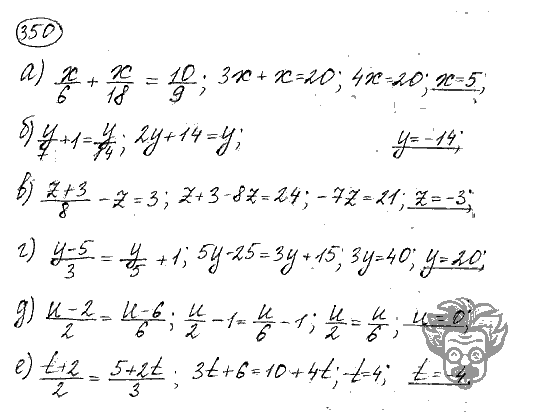 350
а) x/6 + x/18 = 10/9; 3x + x = 20; 4x = 20; x = 5;
б) y/7 + 1 = y/14; 2y + 14 = y; y = -14;
в) (z+3)/8 - z = 3; z + 3 - 8z = 24; -7z = 21; z = -3;
г) (y-5)/3 = y/5 + 1; 5y - 25 = 3y + 15; 3y = 40; y = 20;
д) (u-2)/2 = (u-6)/6; u/2 - 1 = u/6 - 1; u/2 = u/6; u = 0;
е) (t+2)/2 = (5+2t)/3; 3t + 6 = 10 + 4t; -t = 4; t = -4.